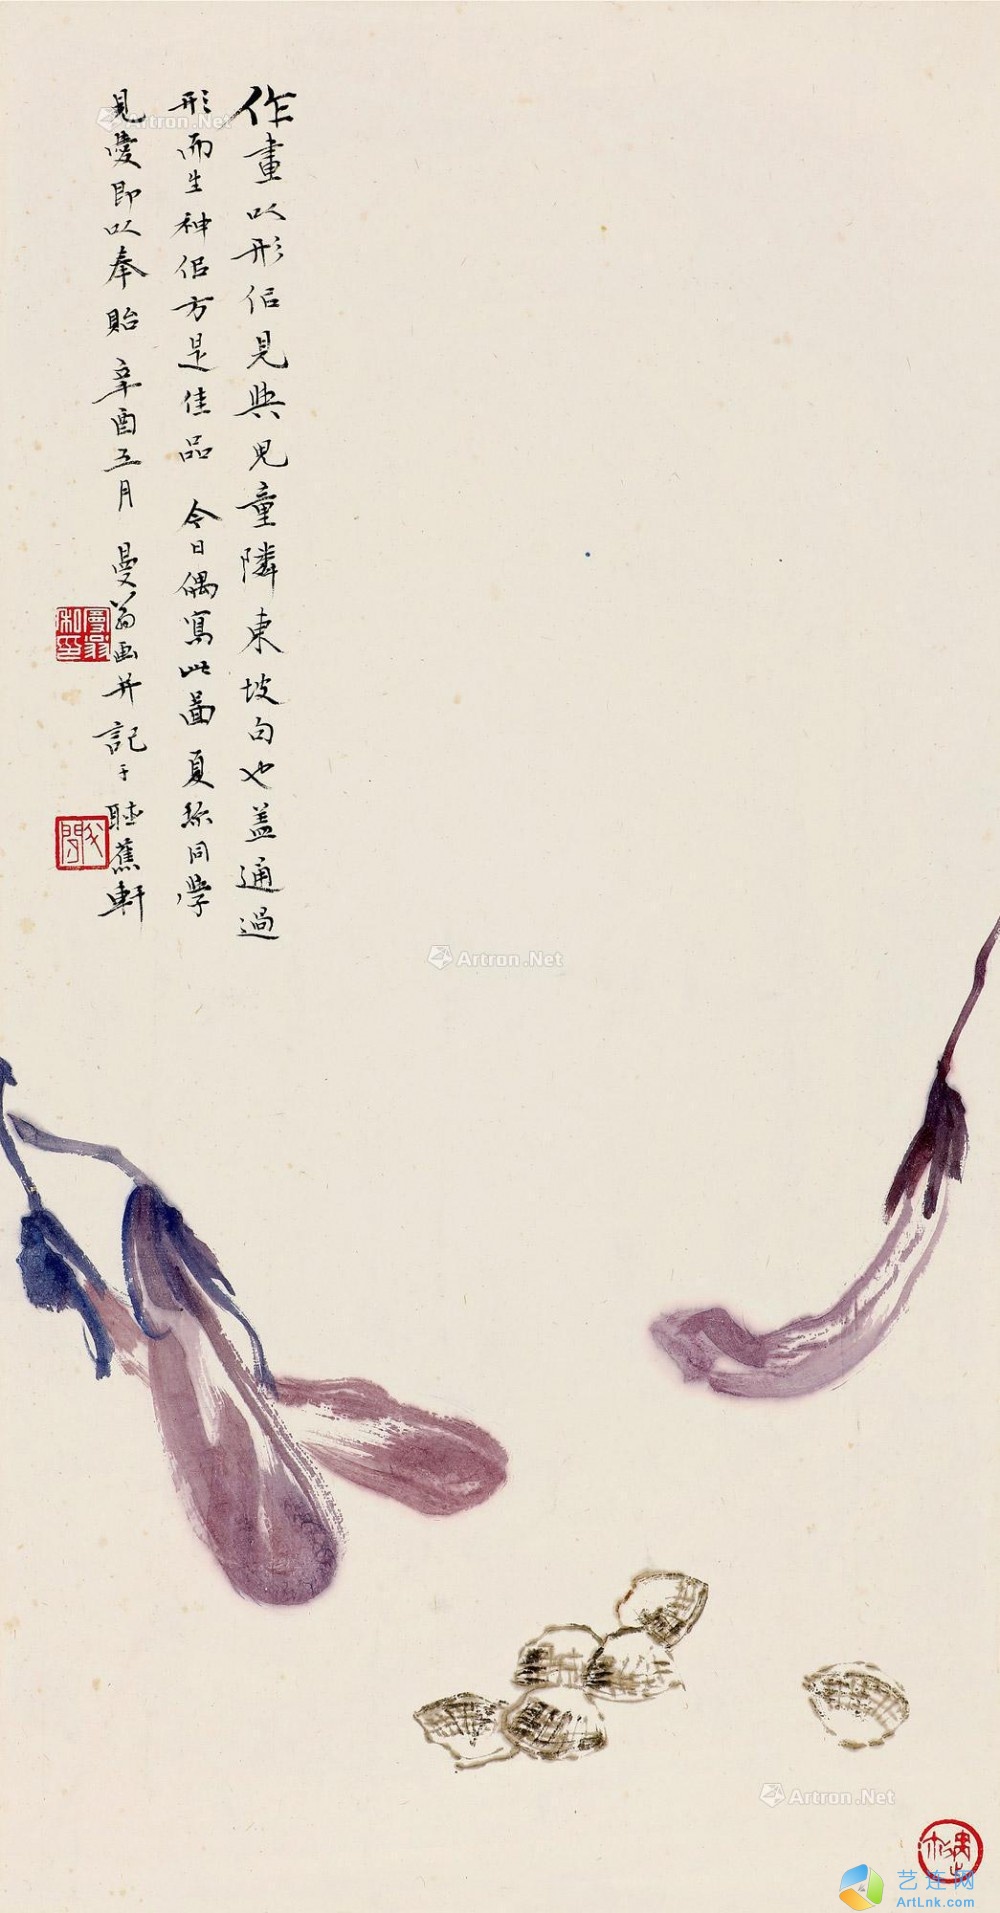 作畫以形佀見與兒童隣東坡句也蓋通過
形而生神佀方是佳品 今日偶寫此圖 夏 同學
見愛即以奉貽 辛酉五月 曼翁画并記于聴蕉軒
Artron.Net
Artron.Net
Artron.Net
艺连网
ArtLnk.com